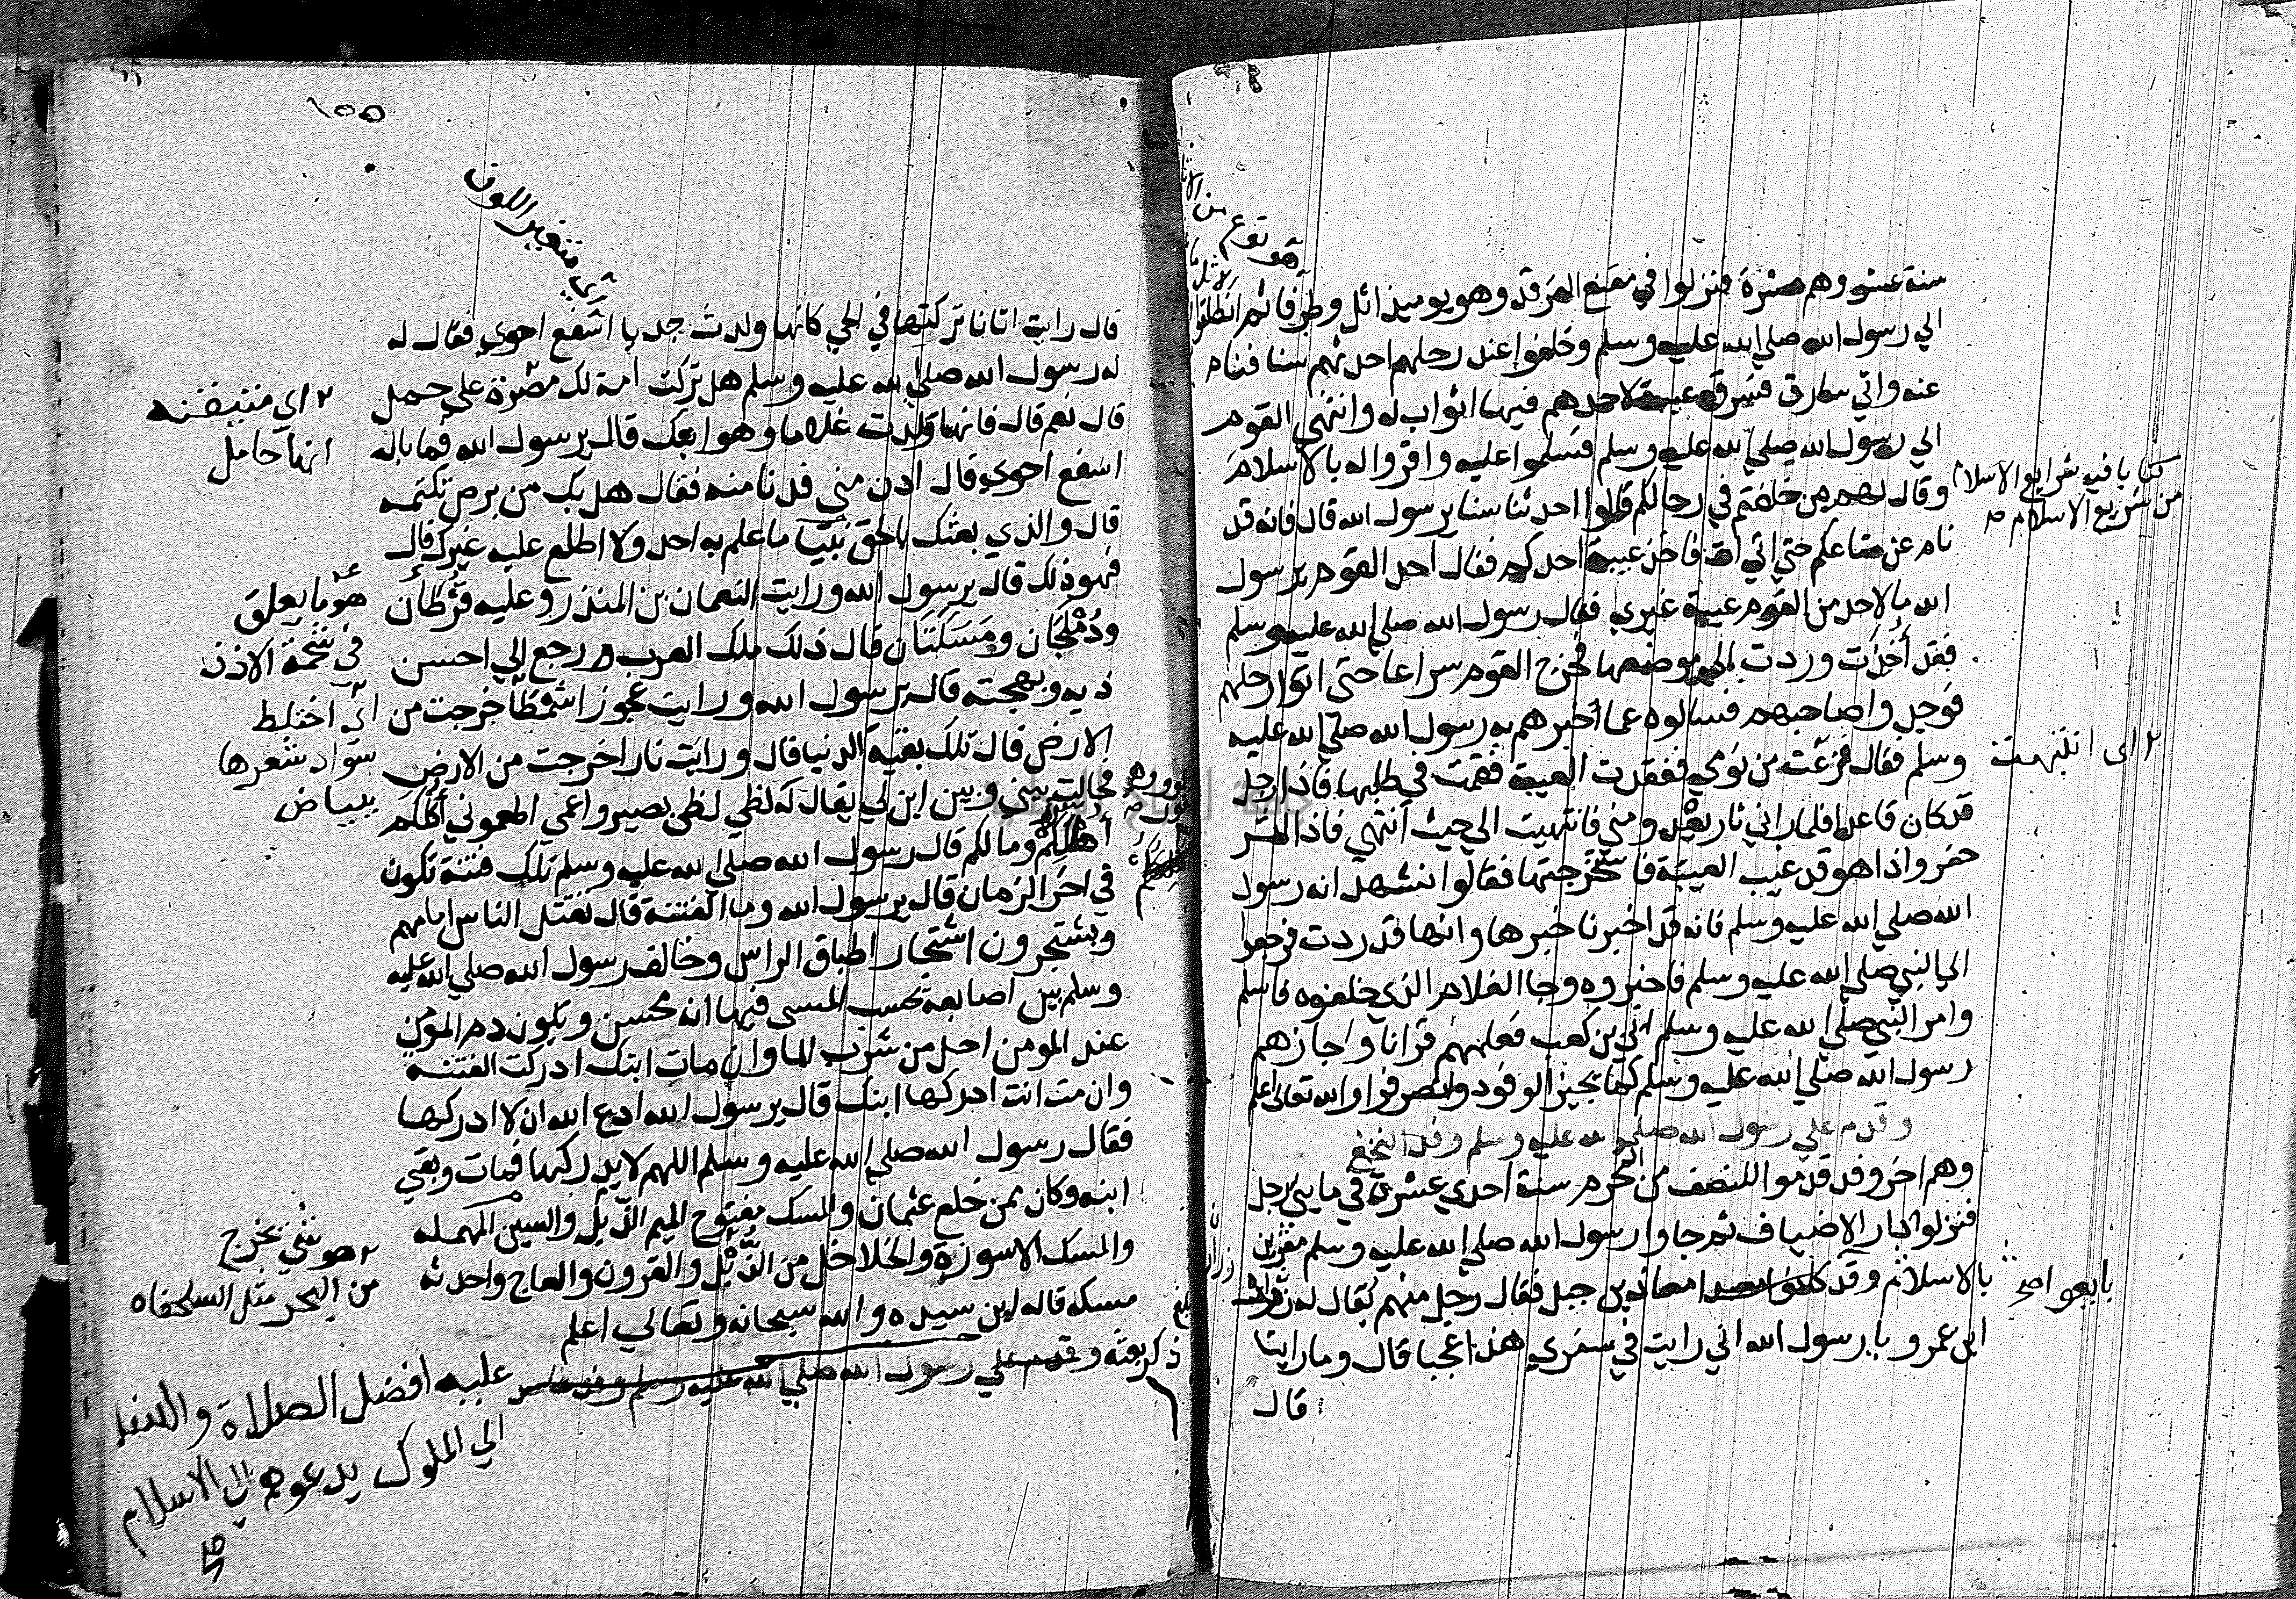 سنة عشر وهم عشرة فنزلوا في بقيع الغرقد وهو يوميذ اثل وطرفا ثم انطلقوا
الي رسول الله صلي الله عليه وسلم وخلفوا عند رحلهم احدثهم سنا فنام
عنه واتي سارق فسرق عيبة لاحدهم فيها اثواب له وانتهي القوم
الي رسول الله صلي الله عليه وسلم فسلموا عليه واقروا له بالاسلام
كتابا فيه شرايع الاسلام
من شريع الاسلام
وقال لهم من خلفتم في رحالكم قالوا احدثنا سنا يرسول الله قال فانه قد
نام عن متاعكم حتي اتي آت فاخذ عيبة احدكم فقال احد القوم يرسول
الله ما لاحد من القوم عيبة غيري فقال رسول الله صلي الله عليه وسلم
فقد أخذت وردت الي موضعها فخرج القوم سراعا حتى اتوا رحلهم
فوجدوا صاحبهم فسالوه عما أخبرهم به رسول الله صلي الله عليه
وسلم فقال فزعت من نومي ففقدت العيبة فقمت في طلبها فاذا رجل
اي انتبهت
قد كان قاعدا فلما راني ثار يعدو مني فانتهيت الي حيث انتهي فاذا اثر
حفر واذا هو قد غيب العيبة فاستخرجتها فقالوا نشهد انه رسول
الله صلي الله عليه وسلم فانه قد اخبرنا خبرها وانها قد ردت فرجعوا
الي النبي صلي الله عليه وسلم فاخبروه وجا الغلام الذي خلفوه فاسلم
وامر النبي صلي الله عليه وسلم ابي بن كعب فعلمهم قرانا واجازهم
رسول الله صلي الله عليه وسلم كما يجيز الوفود وانصرفوا والله تعالى اعلم
وقدم علي رسول الله صلي الله عليه وسلم وفد النخع
وهم اخر وفد قدموا للنصف من المحرم سنة احدي عشرة في مايتي رجل
فنزلوا دار الاضياف ثم جاوا رسول الله صلي الله عليه وسلم مقرين
بالاسلام وقد كانوا بايعوا معاذ بن جبل فقال رجل منهم يقال له زرارة
بايعوا صح
ابن عمرو يا رسول الله اني رايت في سفري هذا عجبا قال وما رايت
قال
١٥٥
اي متغير اللون
قال رايت اتانا تركتها في الحي كانها ولدت جديا اسفع احوي فقال له
له رسول الله صلي الله عليه وسلم هل تركت امة لك مصرة علي حمل
اي متيقنه
انها حامل
قال نعم قال فانها ولدت غلاما وهو ابنك قال يرسول الله فما باله
اسفع احوي قال ادن مني فدنا منه فقال هل بك من برص تكتمه
قال والذي بعثك بالحق نبيا ما علم به احد ولا اطلع عليه غيرك قال
فهو ذلك قال يرسول الله ورايت النعمان بن المنذر وعليه قرطان
هو ما يعلق
في شحمة الاذن
ودملجان ومسكتان قال ذلك ملك العرب رجع الي احسن
زيه وبهجته قال يرسول الله ورايت عجوزا شمطا خرجت من
اي اختلط
سواد شعرها
ببياض
الارض قال تلك بقية الدنيا قال ورايت نارا خرجت من الارض
فحالت بيني وبين ابن لي يقال له عمرو وهي تقول لظي لظي بصير واعمي اطعموني أكلكم
أهلكم ومالكم قال رسول الله صلي الله عليه وسلم تلك فتنة تكون
في اخر الزمان قال يرسول الله وما الفتنة قال يقتل الناس امامهم
ويشتجرون اشتجار اطباق الراس وخالف رسول الله صلي الله عليه
وسلم بين اصابعه يحسب المسي فيها انه محسن ويكون دم المومن
عند المومن احل من شرب الما وان مات ابنك ادركت الفتنه
وان مت انت ادركها ابنك قال يرسول الله ادع الله ان لا ادركها
فقال رسول الله صلي الله عليه وسلم اللهم لا يدركها فمات وبقي
ابنه وكان ممن خلع عثمان والمسك مفتوح الميم والسين المهمله
والمسك الاسورة والخلاخل من الذبل والقرون والعاج واحدته
هو شي يخرج
من البحر مثل السلحفاه
مسكه قاله ابن سيده والله سبحانه وتعالي اعلم
ذكر بعثه عليه افضل الصلاة والسلام
الي الملوك يدعوهم الي الاسلام